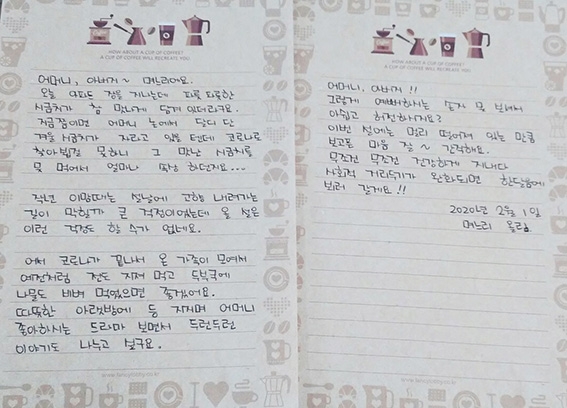 HOW ABOUT A CUP OF COFFEE?
A CUP OF COFFEE WILL RECREATE YOU.
어머니, 아버지~ 며느리에요.
오늘 마트 앞을 지나는데 파릇파릇한
시금치가 참 맛나게 담겨 있더라구요.
지금쯤이면 어머니 논에서 달디 단
겨울 시금치가 자라고 있을 텐데 코로나로
찾아뵙질 못하니 그 맛난 시금치를
못 먹어서 얼마나 속상 하던지요...
작년 이맘때는 설날에 고향 내려가는
길이 막힐까 큰 걱정이었는데 올 설은
이런 걱정도 할 수가 없네요.
어서 코로나가 끝나서 온 가족이 모여서
예전처럼 전도 지져 먹고 두부국에
나물도 비벼 먹었으면 좋겠어요.
따뜻한 아랫방에 등 지지며 어머니
좋아하시는 드라마 보면서 두런두런
이야기도 나누고 싶구요.
www.fancylobby.co.kr
HOW ABOUT A CUP OF COFFEE?
A CUP OF COFFEE WILL RECREATE YOU.
어머니, 아버지!!
그렇게 예뻐하시는 손자 못 보셔서
아쉽고 허전하시지요?
이번 설에는 멀리 떨어져 있는 만큼
보고픈 마음 잘~ 간직해요.
무조건 무조건 건강하게 지내다
사회적 거리두기가 완화되면 한달음에
보러 갈게요!!
2020년 2월 1일
며느리 올림